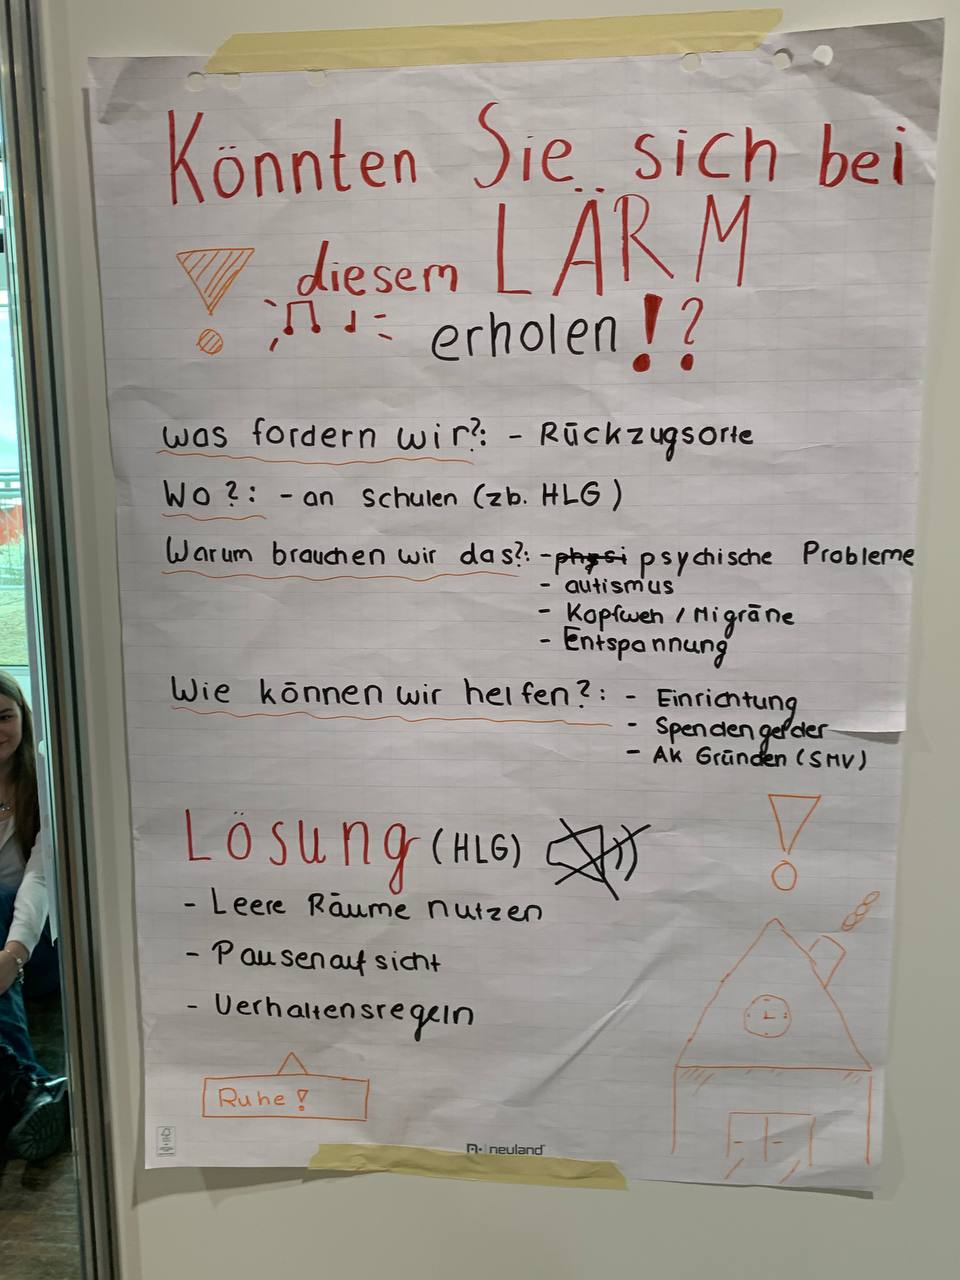 Könnten Sie sich bei
diesem LÄRM
erholen!?
was fordern wir?: - Rückzugsorte
Wo?: - an Schulen (zb. HLG)
Warum brauchen wir das?: - physi psychische Probleme
- autismus
- Kopfweh / Migräne
- Entspannung
Wie können wir helfen?: - Einrichtung
- Spendengelder
- AK Gründen (SMV)
Lösung (HLG)
- Leere Räume nutzen
- Pausenaufsicht
- Verhaltensregeln
Ruhe!
neuland